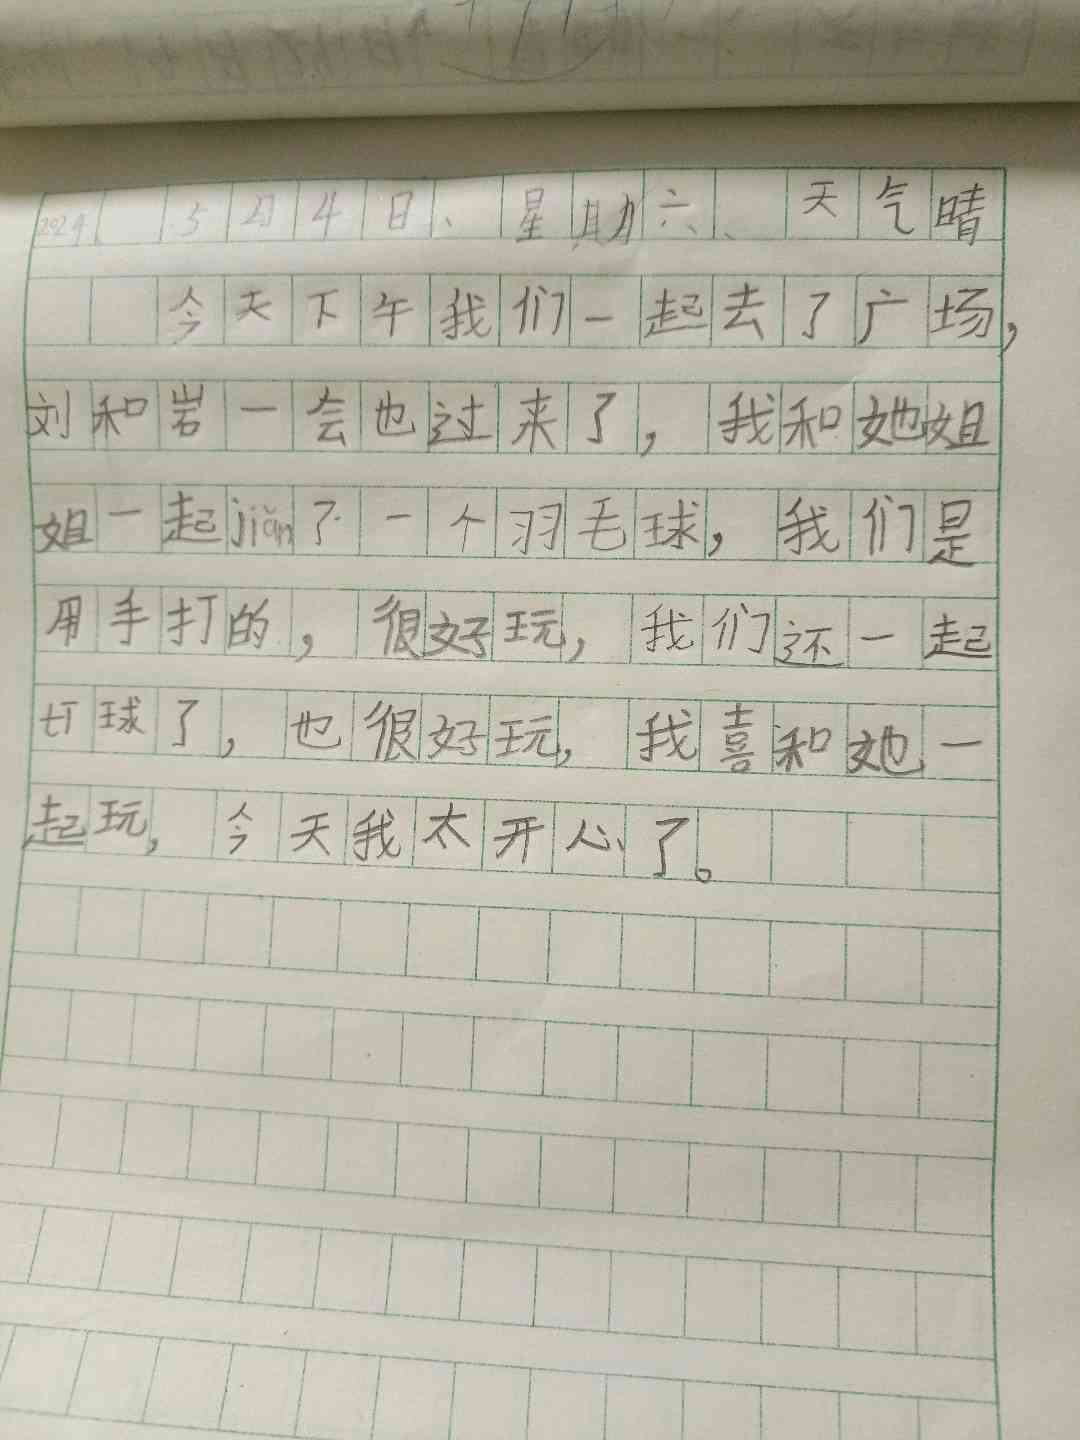 2024 5月4日、星期六、天气晴
今天下午我们一起去了广场,
刘和岩一会也过来了，我和她姐
姐一起jiǎn了一个羽毛球，我们是
用手打的，很好玩，我们还一起
打球了，也很好玩，我喜和她一
起玩，今天我太开心了。